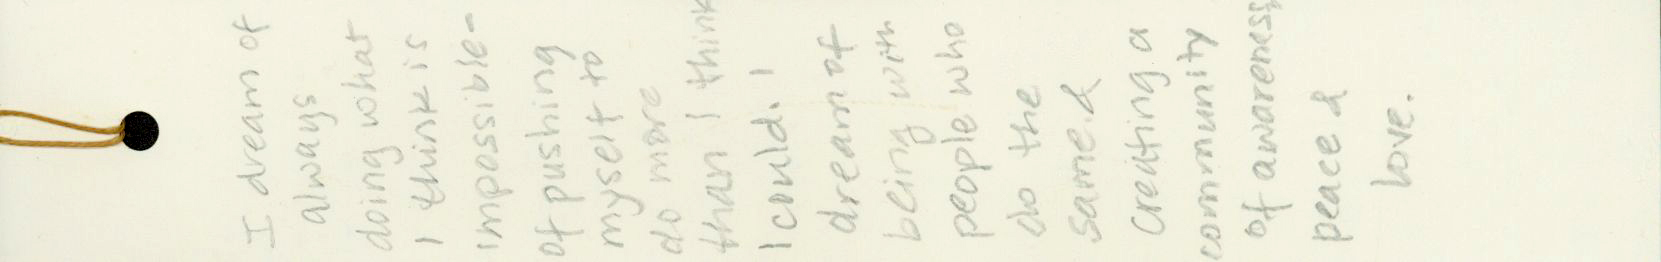 I dream of
always
doing what
I think is
impossible-
of pushing
myself to
do more
than I think
I could. I
dream of
being with
people who
do the
same &
creating a
community
of awareness
peace &
love.